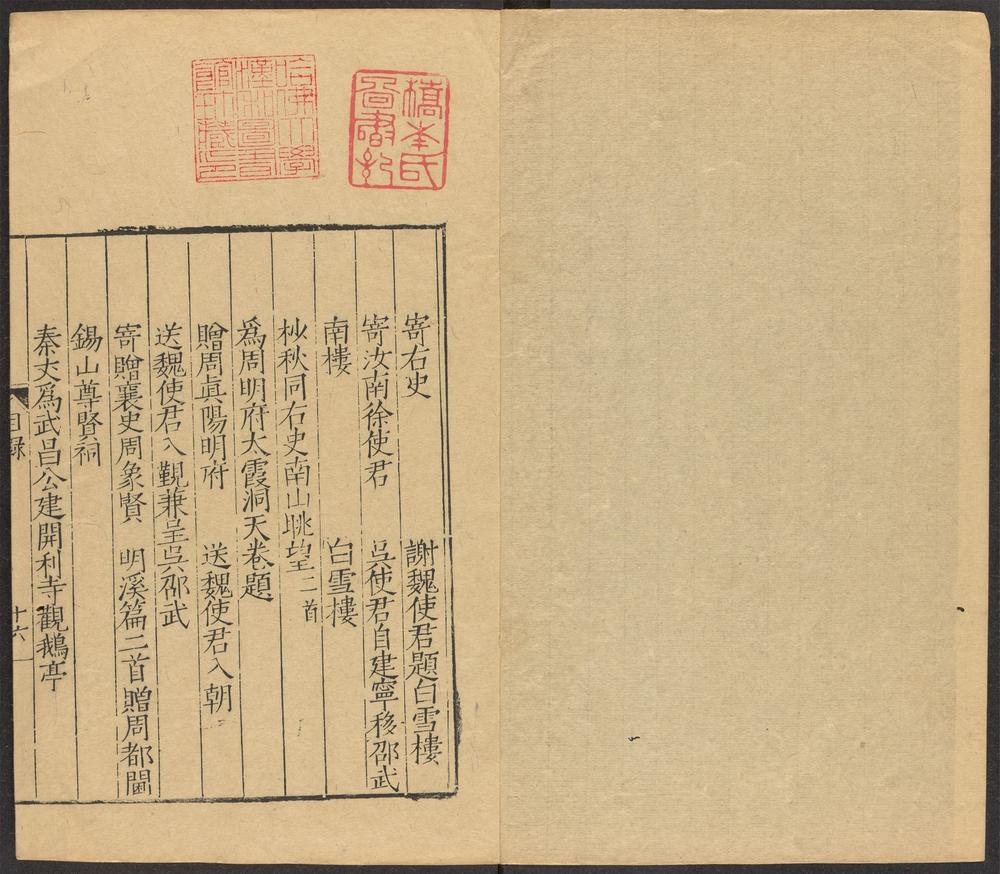 橋本氏
圖書記
哈佛大學
漢和圖書
館珍藏印
寄右史 謝魏使君題白雪樓
寄汝南徐使君 吳使君自建寧移邵武
南樓 白雪樓
杪秋同右史南山眺望二首
爲周明府太霞洞天卷題
贈周眞陽明府 送魏使君入朝
送魏使君入覲兼呈吳邵武
寄贈襄史周象賢 明溪篇二首贈周都閫
錫山尊賢祠
秦丈爲武昌公建開利寺觀鵝亭
目録 十六